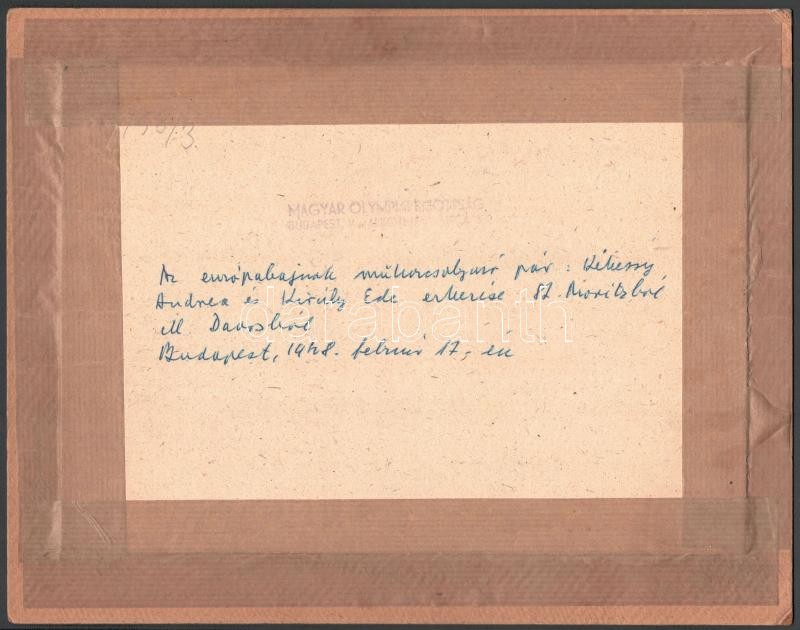 MAGYAR OLYMPIAI BIZOTTSÁG
BUDAPEST, V.
Az európabajnok műkorcsolyázó pár: Kékessy
Andrea és Király Ede érkezése St. Moritzból
ill Davosból
Budapest, 1948. február 17.-én
darabanth